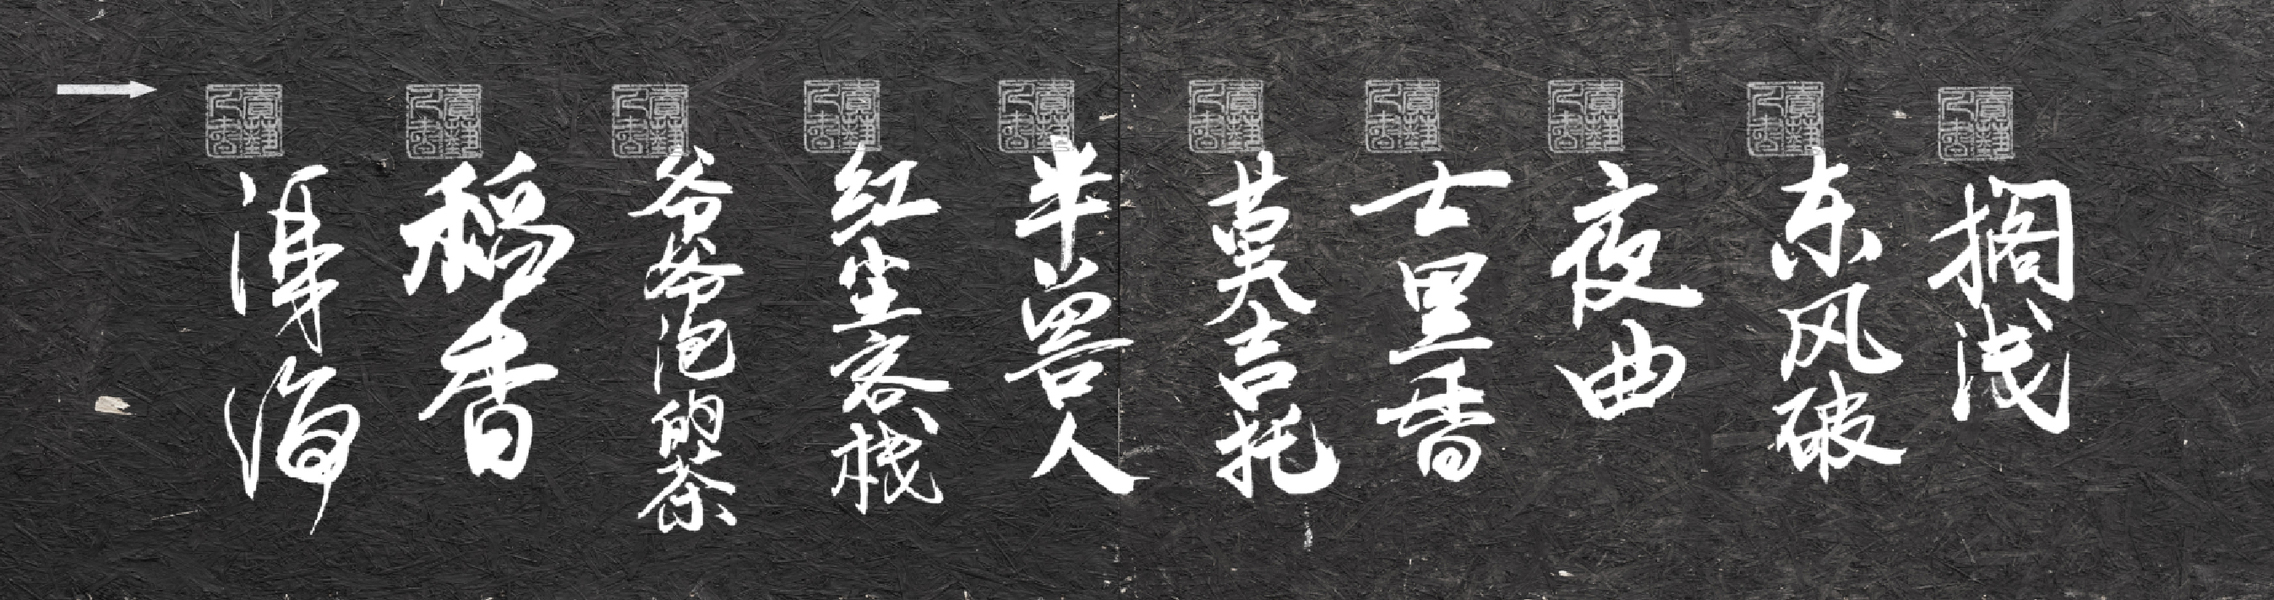 海
稻香
爷爷泡的茶
红尘客栈
半兽人
莫吉托
七里香
夜曲
东风破
搁浅